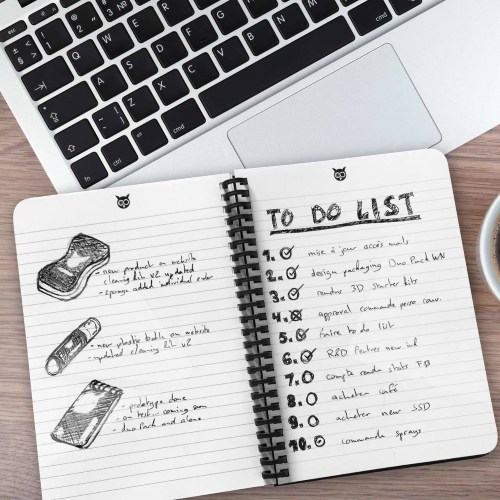 - new product on website
cleaning kit v2 updated
- sponge added individual order
- new plastic bottle on website
- updated cleaning kit v2
- prototype done
- on test... coming soon
- duo pack and alone
TO DO LIST
1. mise à jour accés mails
2. design packaging Duo Pack WN
3. rendus 3D Starter kits
4. approval commande perso
5. faire to do list
6. R&D Feutres new ink
7. compte rendu stats FB
8. acheter café
9. acheter new SSD
10. commande sprays
Q W E R T
A S D F G H
Z X C V B N M
fn ctrl alt cmd
cmd